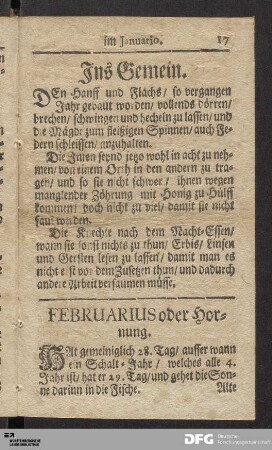 im Januario. 17
Ins Gemein.
DEn Hanff und Flachs/ so vergangen
Jahr gebaut worden/ vollends dörren/
brechen/ schwingen und hecheln zu lassen/ und
die Mägde zum fleißigen Spinnen/ auch Fe-
dern schleissen/ anzuhalten.
Die Imen seynd jetzo wohl in acht zu neh-
men/ von einem Orth in den andern zu tra-
gen/ und so sie nicht schwer/ ihnen wegen
manglender Zöhrung mit Honig zu Hülff
kommen/ doch nicht zu viel/ damit sie nicht
faul werden.
Die Knechte nach dem Nacht-Essen/
wann sie sonst nichts zu thun/ Erbis/ Linsen
und Gersten lesen zu lassen/ damit man es
nicht erst vor dem Zusetzen thun/ und dadurch
andere Arbeit versaumen müsse.
FEBRUARIUS oder Hor-
nung.
HAt gemeiniglich 28. Tag/ ausser wann
ein Schalt-Jahr/ welches alle 4.
Jahr ist/ hat er 29. Tag/ und gehet die Son-
ne darinn in die Fische. Alte
DFG Deutsche
Forschungsgemeinschaft